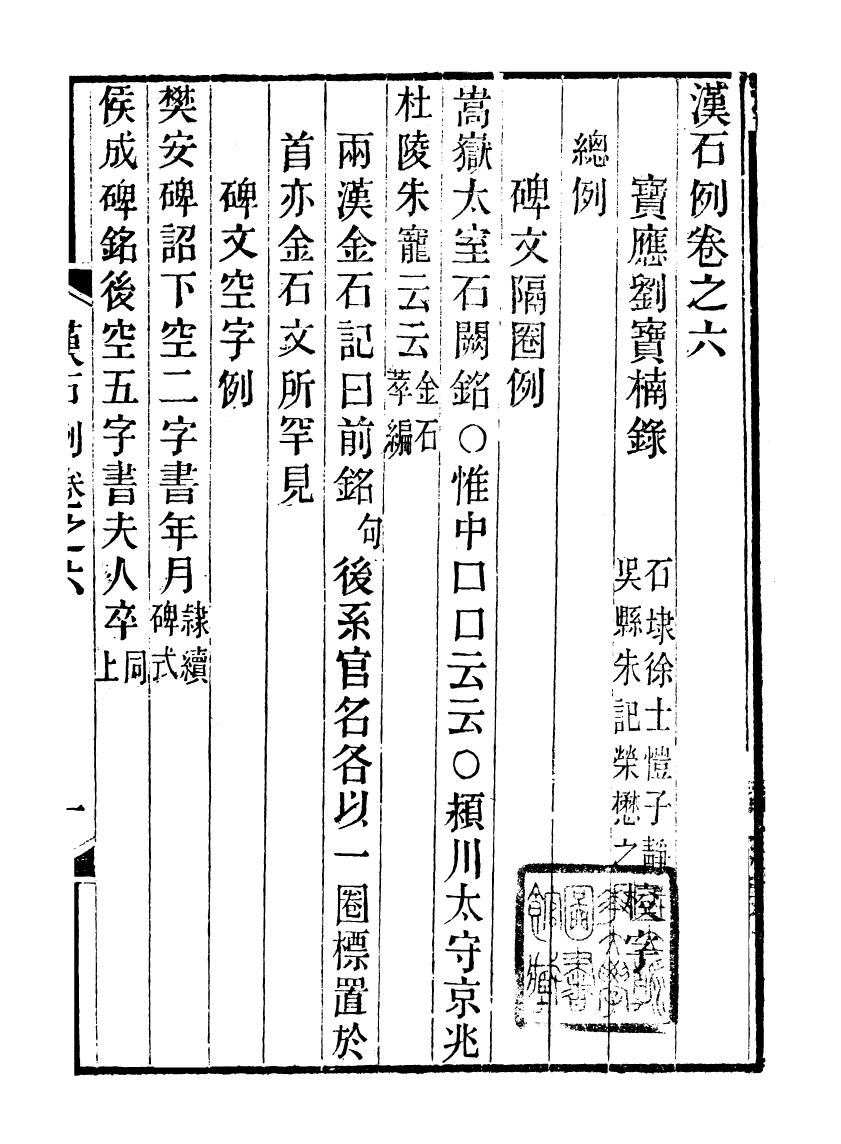 漢石例卷之六
寶應劉寶楠錄
石埭徐士愷子靜
吳縣朱記榮懋之
校字
總例
碑文隔圈例
嵩嶽太室石闕銘〇惟中口口云云〇頴川太守京兆
杜陵朱寵云云金石萃編
兩漢金石記曰前銘句後系官名各以一圈標置於
首亦金石文所罕見
碑文空字例
樊安碑詔下空二字書年月隸續碑式
侯成碑銘後空五字書夫人卒同上
漢石例卷之六
一